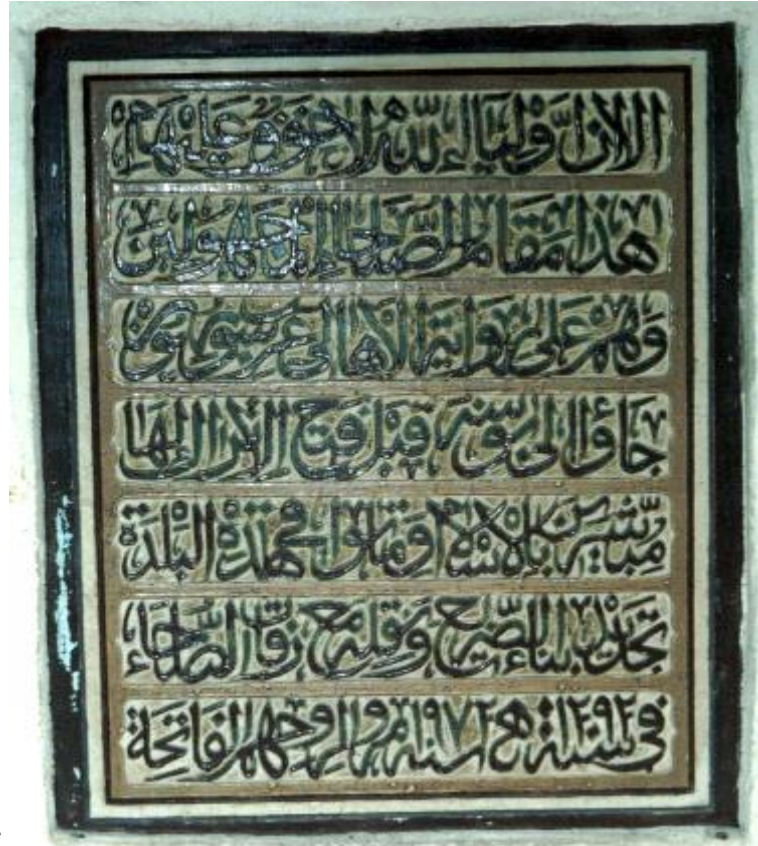 الا ان اولياء لله لا خوف عليهم
هذا مقام الصلحاء المجهولين
وهم على رواية الاهالى عرب
جاؤا الى بوسنه قبل فتح الاتراك لها
مبشرين بالاسلام وماتوا فى هذه البلدة
تجديد بناء الضريح ونقله مع
فى سنة ١٣٩٢ هـ سنه ١٩٧٢ م ولروحهم الفاتحة